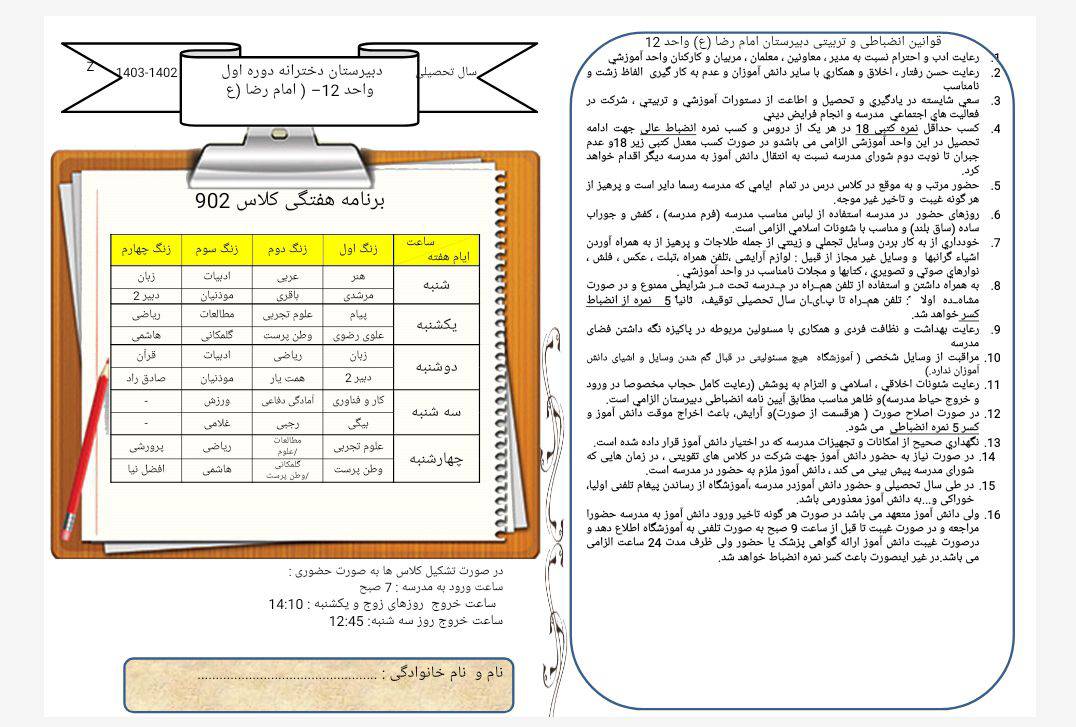 قوانین انضباطی و تربیتی دبیرستان امام رضا (ع) واحد 12
1. رعایت ادب و احترام نسبت به مدیر ، معاونین ، معلمان ، مربیان و کارکنان واحد آموزشی
2. رعایت حسن رفتار ، اخلاق و همکاری با سایر دانش آموزان و عدم به کار گیری الفاظ زشت و
نامناسب
3. سعی شایسته در یادگیری و تحصیل و اطاعت از دستورات آموزشی و تربیتی ، شرکت در
فعالیت های اجتماعی مدرسه و انجام فرایض دینی
4. کسب حداقل نمره کتبی 18 در هر یک از دروس و کسب نمره انضباط عالی جهت ادامه
تحصیل در این واحد آموزشی الزامی می باشدو در صورت کسب معدل کتبی زیر 18و عدم
جبران تا نوبت دوم شورای مدرسه نسبت به انتقال دانش آموز به مدرسه دیگر اقدام خواهد
کرد.
5. حضور مرتب و به موقع در کلاس درس در تمام ایامی که مدرسه رسما دایر است و پرهیز از
هر گونه غیبت و تاخیر غیر موجه.
6. روزهای حضور در مدرسه استفاده از لباس مناسب مدرسه (فرم مدرسه) ، کفش و جوراب
ساده (ساق بلند) و مناسب با شئونات اسلامی الزامی است.
7. خودداری از به کار بردن وسایل تجملی و زینتی از جمله طلاجات و پرهیز از به همراه آوردن
اشیاء گرانبها و وسایل غیر مجاز از قبیل : لوازم آرایشی ،تلفن همراه ،تبلت ، عکس ، فلش ،
نوارهای صوتی و تصویری ، کتابها و مجلات نامناسب در واحد آموزشی .
8. به همراه داشتن و استفاده از تلفن همـراه در مـدرسه تحت هـر شرایطی ممنوع و در صورت
مشاهـده اولا ً: تلفن همـراه تا پـایـان سال تحصیلی توقیف، ثانیاً 5 نمره از انضباط
کسر خواهد شد.
9. رعایت بهداشت و نظافت فردی و همکاری با مسئولین مربوطه در پاکیزه نگه داشتن فضای
مدرسه
10. مراقبت از وسایل شخصی ( آموزشگاه هیچ مسئولیتی در قبال گم شدن وسایل و اشیای دانش
آموزان ندارد.)
11. رعایت شئونات اخلاقی ، اسلامی و التزام به پوشش (رعایت کامل حجاب مخصوصا در ورود
و خروج حیاط مدرسه)و ظاهر مناسب مطابق آیین نامه انضباطی دبیرستان الزامی است.
12. در صورت اصلاح صورت ( هرقسمت از صورت)و آرایش، باعث اخراج موقت دانش آموز و
کسر 5 نمره انضباطی می شود.
13. نگهداری صحیح از امکانات و تجهیزات مدرسه که در اختیار دانش آموز قرار داده شده است.
14. در صورت نیاز به حضور دانش آموز جهت شرکت در کلاس های تقویتی ، در زمان هایی که
شورای مدرسه پیش بینی می کند ، دانش آموز ملزم به حضور در مدرسه است.
15. در طی سال تحصیلی و حضور دانش آموزدر مدرسه ،آموزشگاه از رساندن پیغام تلفنی اولیا،
خوراکی و...به دانش آموز معذورمی باشد.
16. ولی دانش آموز متعهد می باشد در صورت هر گونه تاخیر ورود دانش آموز به مدرسه حضورا
مراجعه و در صورت غیبت تا قبل از ساعت 9 صبح به صورت تلفنی به آموزشگاه اطلاع دهد و
درصورت غیبت دانش آموز ارائه گواهی پزشک یا حضور ولی ظرف مدت 24 ساعت الزامی
می باشد.در غیر اینصورت باعث کسر نمره انضباط خواهد شد.
سال تحصیلی 1402-1403 Z
دبیرستان دخترانه دوره اول
واحد 12– ( امام رضا (ع
برنامه هفتگی کلاس 902
ساعت
ایام هفته زنگ اول زنگ دوم زنگ سوم زنگ چهارم
شنبه هنر عربی ادبیات زبان
مرشدی باقری موذنیان دبیر 2
یکشنبه پیام علوم تجربی مطالعات ریاضی
علوی رضوی وطن پرست گلمکانی هاشمی
دوشنبه زبان ریاضی ادبیات قرآن
دبیر 2 همت یار موذنیان صادق راد
سه شنبه کار و فناوری آمادگی دفاعی ورزش -
بیگی رجبی غلامی -
چهارشنبه علوم تجربی مطالعات /علوم ریاضی پرورشی
وطن پرست گلمکانی /وطن پرست هاشمی افضل نیا
در صورت تشکیل کلاس ها به صورت حضوری :
ساعت ورود به مدرسه : 7 صبح
ساعت خروج روزهای زوج و یکشنبه : 14:10
ساعت خروج روز سه شنبه: 12:45
نام و نام خانوادگی : ................................................